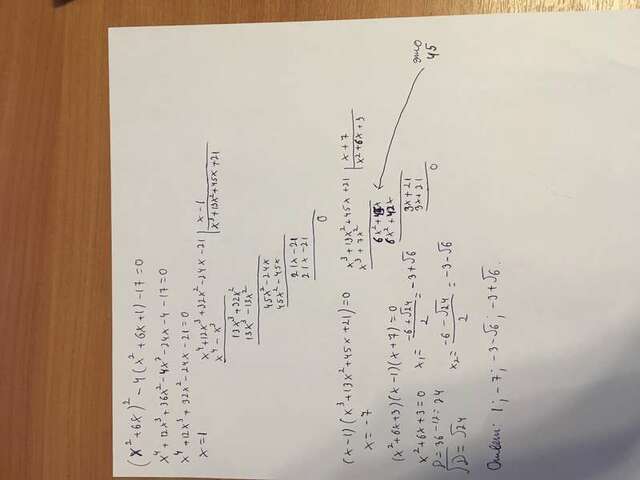 (x²+6x)² - 4(x²+6x+1) - 17=0
x⁴+12x³+36x²-4x²-24x-4-17=0
x⁴+12x³+32x²-24x-21=0
x=1
x⁴+12x³+32x²-24x-21 | x-1
x⁴-x³ | x³+13x²+45x+21
13x³+32x²
13x³-13x²
45x²-24x
45x²-45x
21x-21
21x-21
0
(x-1)(x³+13x²+45x+21)=0
x=-7
x³+13x²+45x+21 | x+7
x³+7x² | x²+6x+3
6x²+45x
6x²+42x
3x+21
3x+21
0
это
45
(x²+6x+3)(x-1)(x+7)=0
x²+6x+3=0
D=36-12=24
√D=√24
x₁=(-6+√24)/2=-3+√6
x₂=(-6-√24)/2=-3-√6
Ответ: 1; -7; -3-√6; -3+√6.